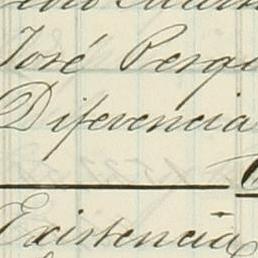 José Perqu
Diferencia
Existencia